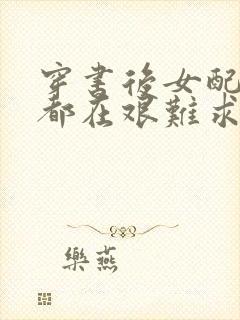 穿書後女配
都在艰難求
樂燕